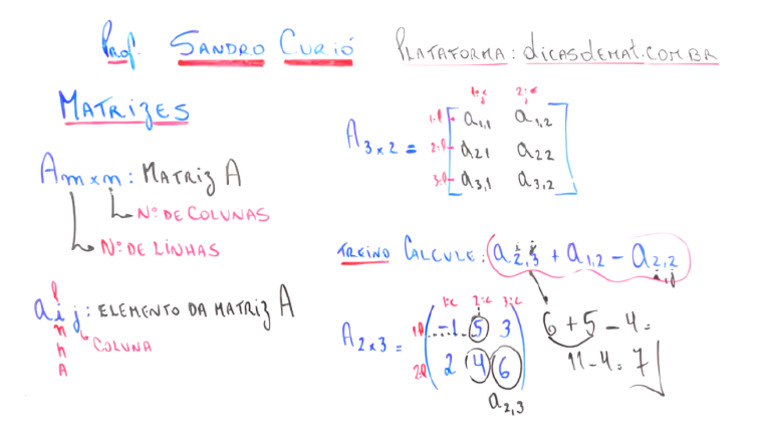 Prof. SANDRO CURIÓ PLATAFORMA: dicasdemat.com.BR
MATRIZES
A m×n: MATRIZ A
Nº DE COLUNAS
Nº DE LINHAS
aij: ELEMENTO DA MATRIZ A
linhA
COLUNA
1ª c 2ª c
j j
A3×2 =
1ª l a1,1 a1,2
2ª l a21 a22
3ª l a3,1 a3,2
TREINO CALCULE: a2,3 + a1,2 − a2,2
i j
i,j
1ª c 2ª c 3ª c
A2×3 =
1ª l −1 5 3
2ª l 2 4 6
a2,3
6 + 5 − 4 =
11 − 4 = 7